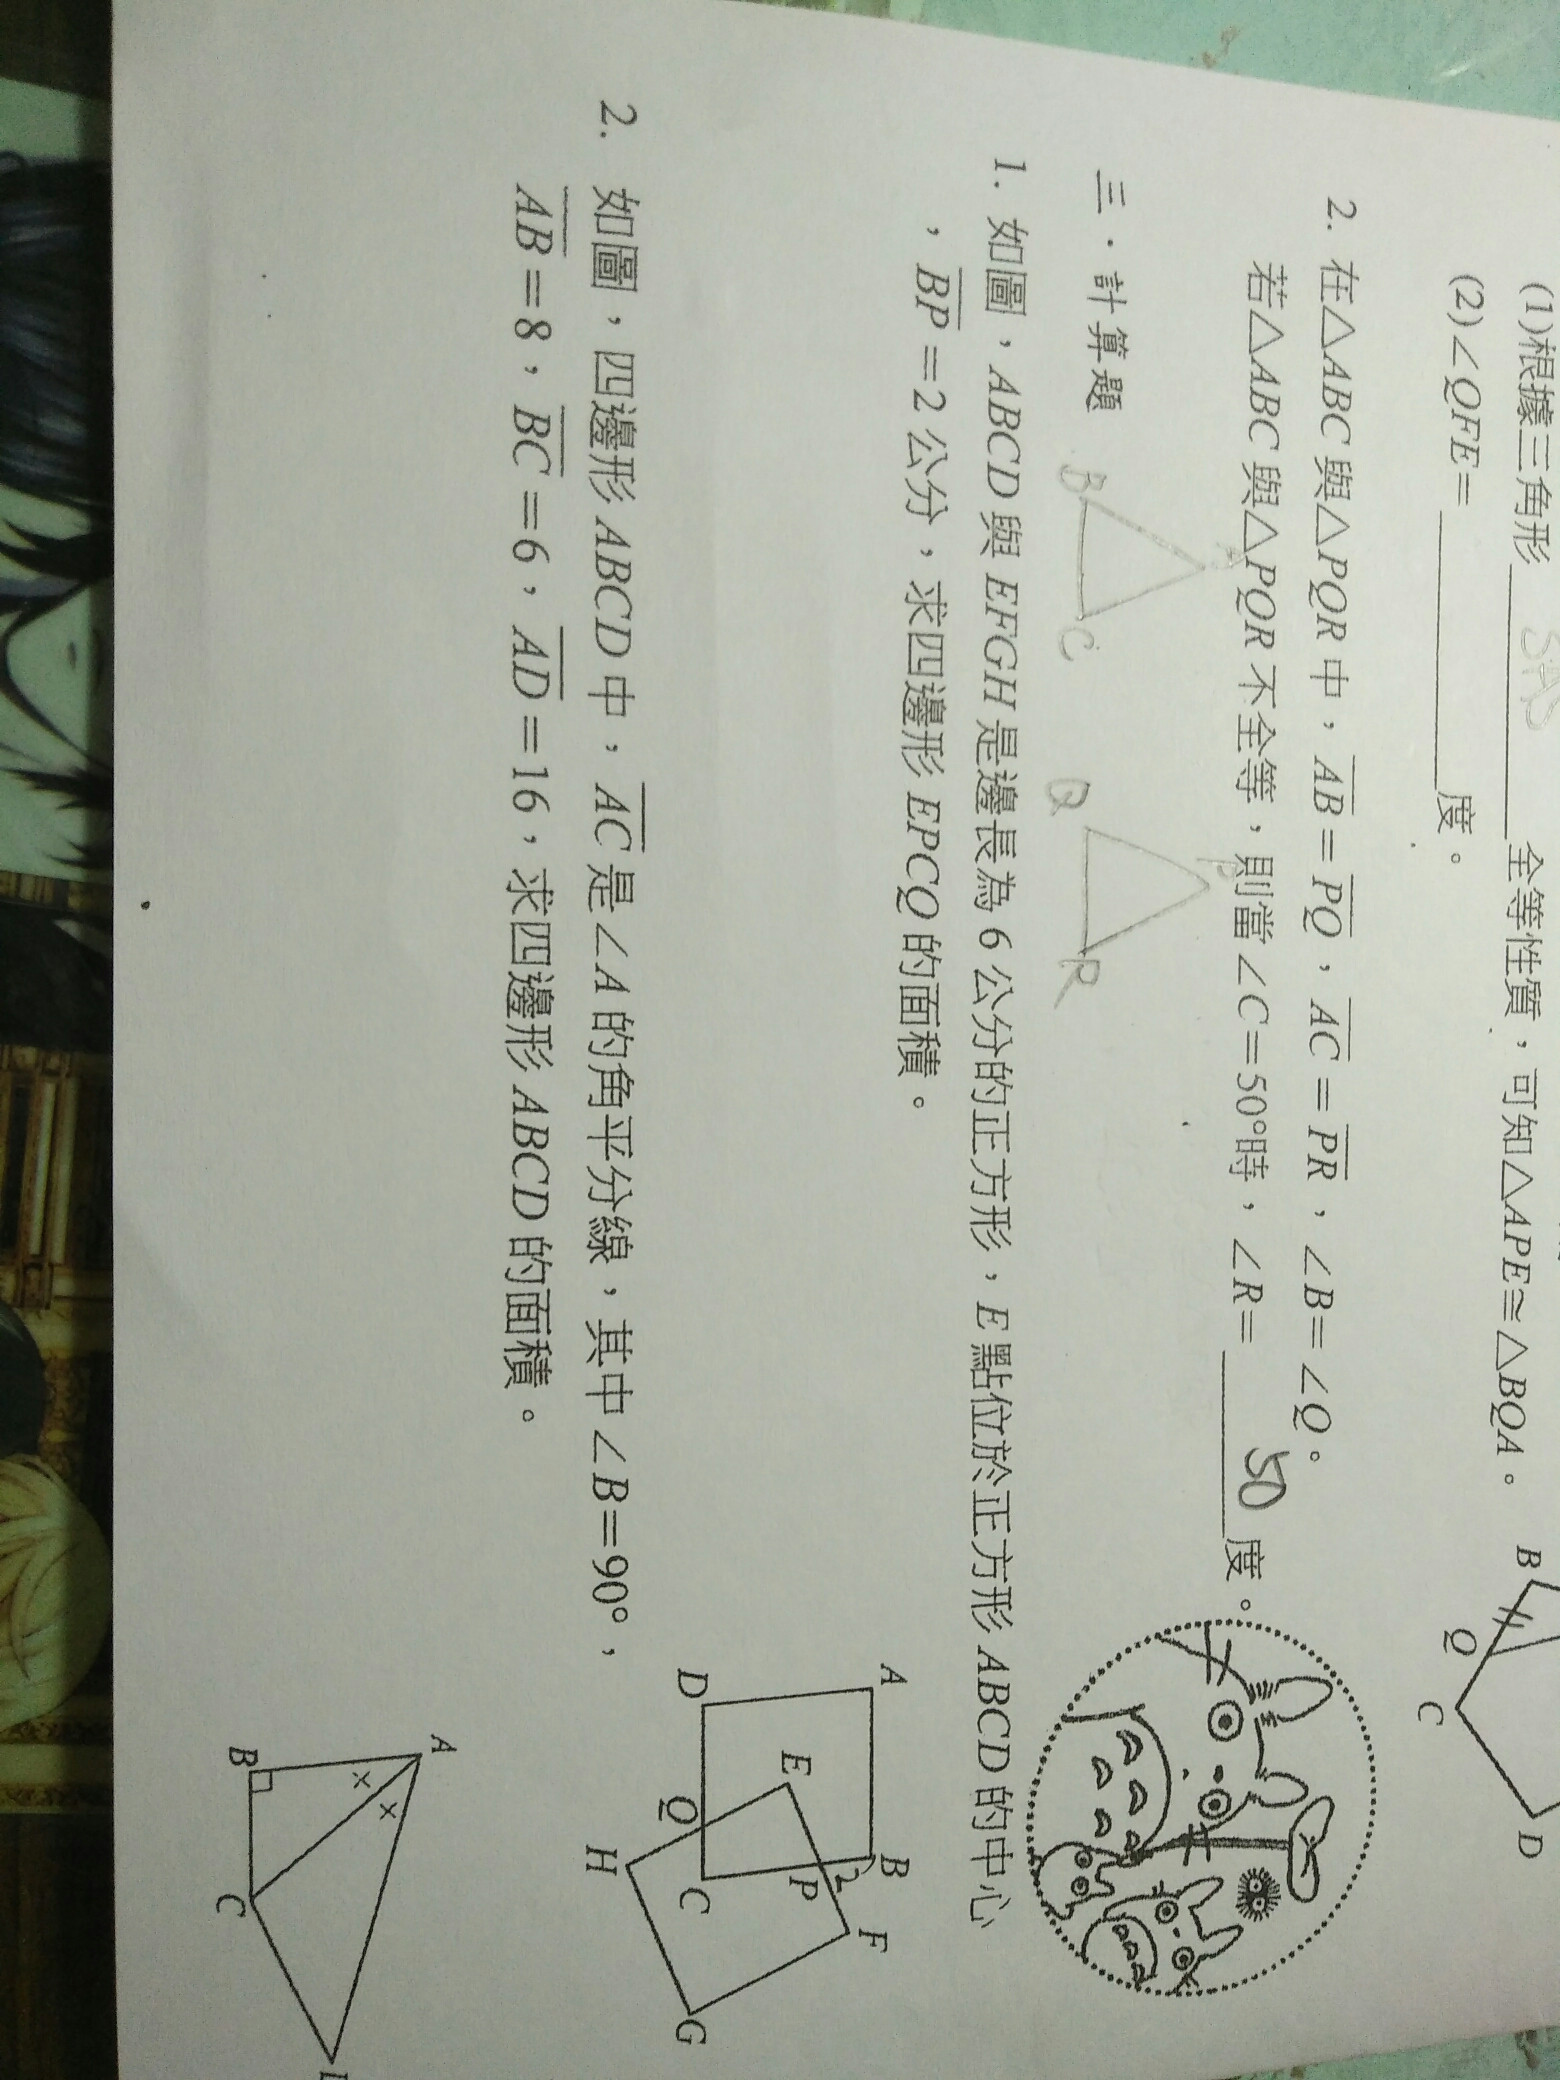 (1)根據三角形 SAS 全等性質，可知△APE≅△BQA。
(2)∠QFE=________度。
B
Q
C
D
2. 在△ABC與△PQR中，AB=PQ，AC=PR，∠B=∠Q。
若△ABC與△PQR不全等，則當∠C=50°時，∠R= 50 度。
三．計算題
B
C
Q
R
1. 如圖，ABCD與EFGH是邊長為6公分的正方形，E點位於正方形ABCD的中心
，BP=2公分，求四邊形EPCQ的面積。
A
B
2
F
E
P
D
Q
C
H
G
2. 如圖，四邊形ABCD中，AC是∠A的角平分線，其中∠B=90°，
AB=8，BC=6，AD=16，求四邊形ABCD的面積。
A
×
×
B
C